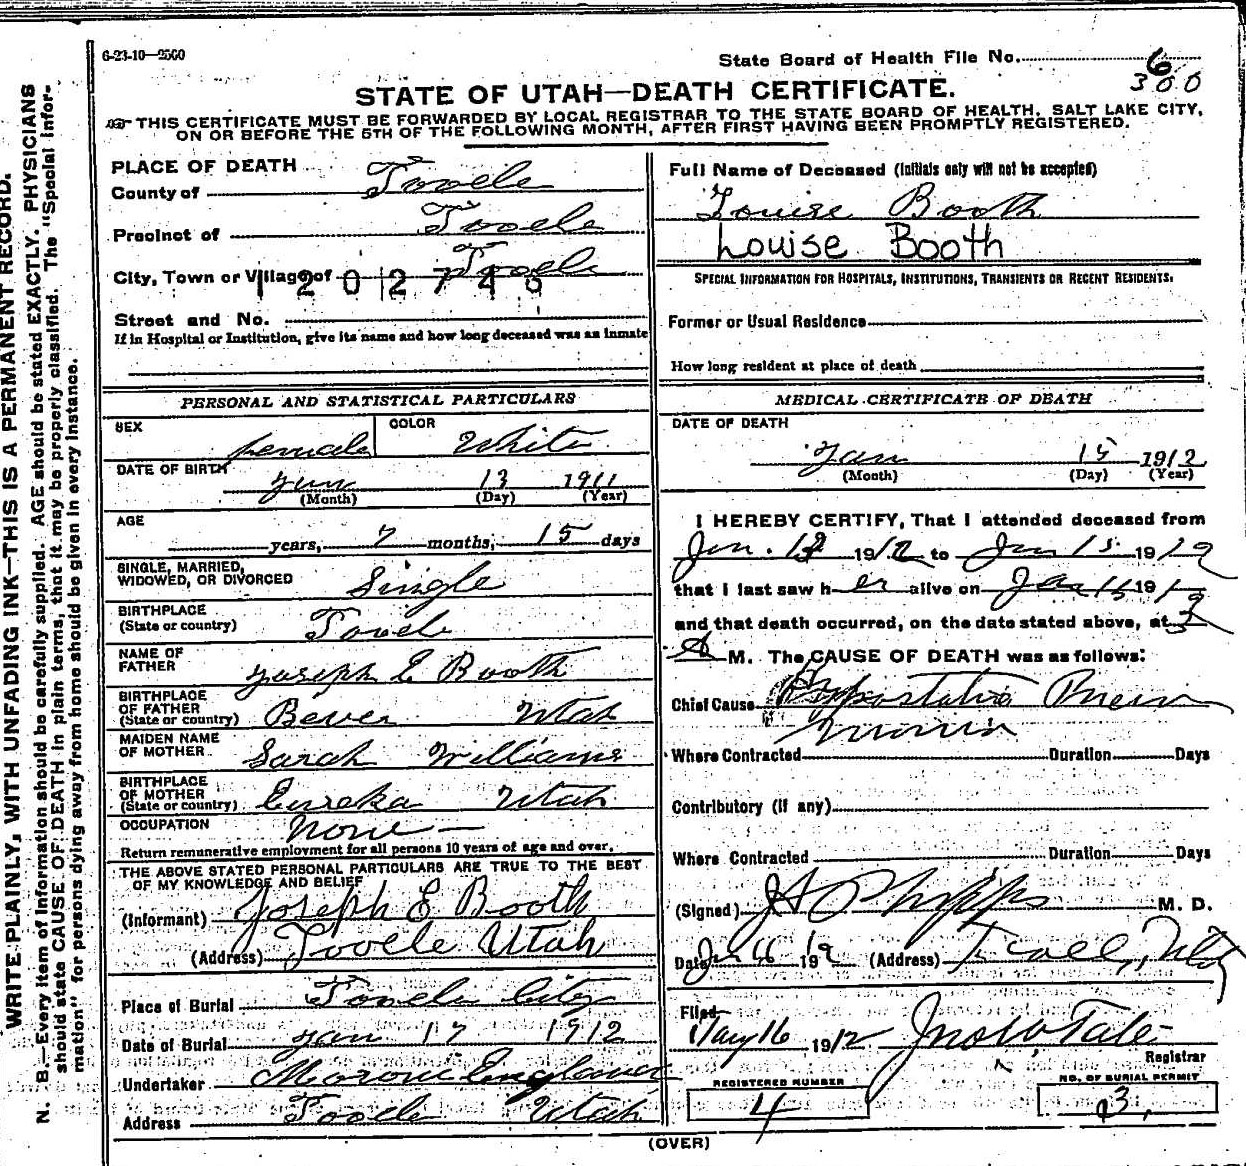 6-23-10—2500
State Board of Health File No. 6
300
STATE OF UTAH—DEATH CERTIFICATE.
THIS CERTIFICATE MUST BE FORWARDED BY LOCAL REGISTRAR TO THE STATE BOARD OF HEALTH, SALT LAKE CITY,
ON OR BEFORE THE 5TH OF THE FOLLOWING MONTH, AFTER FIRST HAVING BEEN PROMPTLY REGISTERED.
PLACE OF DEATH
County of Tooele
Precinct of Tooele
City, Town or Village of Tooele
1202746
Street and No.
If in Hospital or Institution, give its name and how long deceased was an inmate
Full Name of Deceased (Initials only will not be accepted)
Louise Booth
Louise Booth
SPECIAL INFORMATION FOR HOSPITALS, INSTITUTIONS, TRANSIENTS OR RECENT RESIDENTS.
Former or Usual Residence
How long resident at place of death
PERSONAL AND STATISTICAL PARTICULARS
SEX female COLOR White
DATE OF BIRTH June 13 1911
(Month) (Day) (Year)
AGE
years, 7 months, 15 days
SINGLE, MARRIED,
WIDOWED, OR DIVORCED Single
BIRTHPLACE
(State or country) Tooele
NAME OF
FATHER Joseph E Booth
BIRTHPLACE
OF FATHER
(State or country) Bever Utah
MAIDEN NAME
OF MOTHER Sarah Williams
BIRTHPLACE
OF MOTHER
(State or country) Eureka Utah
OCCUPATION None —
Return remunerative employment for all persons 10 years of age and over.
THE ABOVE STATED PERSONAL PARTICULARS ARE TRUE TO THE BEST
OF MY KNOWLEDGE AND BELIEF
(Informant) Joseph E Booth
(Address) Tooele Utah
Place of Burial Tooele City
Date of Burial Jan 17 1912
Undertaker Moroni
Address Tooele Utah
MEDICAL CERTIFICATE OF DEATH
DATE OF DEATH
Jan 15 1912
(Month) (Day) (Year)
I HEREBY CERTIFY, That I attended deceased from
Jan. 13 1912 to Jan 15 1912
that I last saw her alive on Jan 15 1912
and that death occurred, on the date stated above, at 3
A M. The CAUSE OF DEATH was as follows:
Chief Cause Hypostatic Pneu
monia
Where Contracted Duration Days
Contributory (if any)
Where Contracted Duration Days
(Signed) Phipps M. D.
Date Jan 16 1912 (Address) Tooele, Utah
Filed
Jany 16 1912 Jno W Tate
Registrar
REGISTERED NUMBER
4
NO. OF BURIAL PERMIT
3
(OVER)
WRITE PLAINLY, WITH UNFADING INK—THIS IS A PERMANENT RECORD.
N. B.—Every item of information should be carefully supplied. AGE should be stated EXACTLY. PHYSICIANS
should state CAUSE OF DEATH in plain terms, that it may be properly classified. The "Special Infor-
mation" for persons dying away from home should be given in every instance.